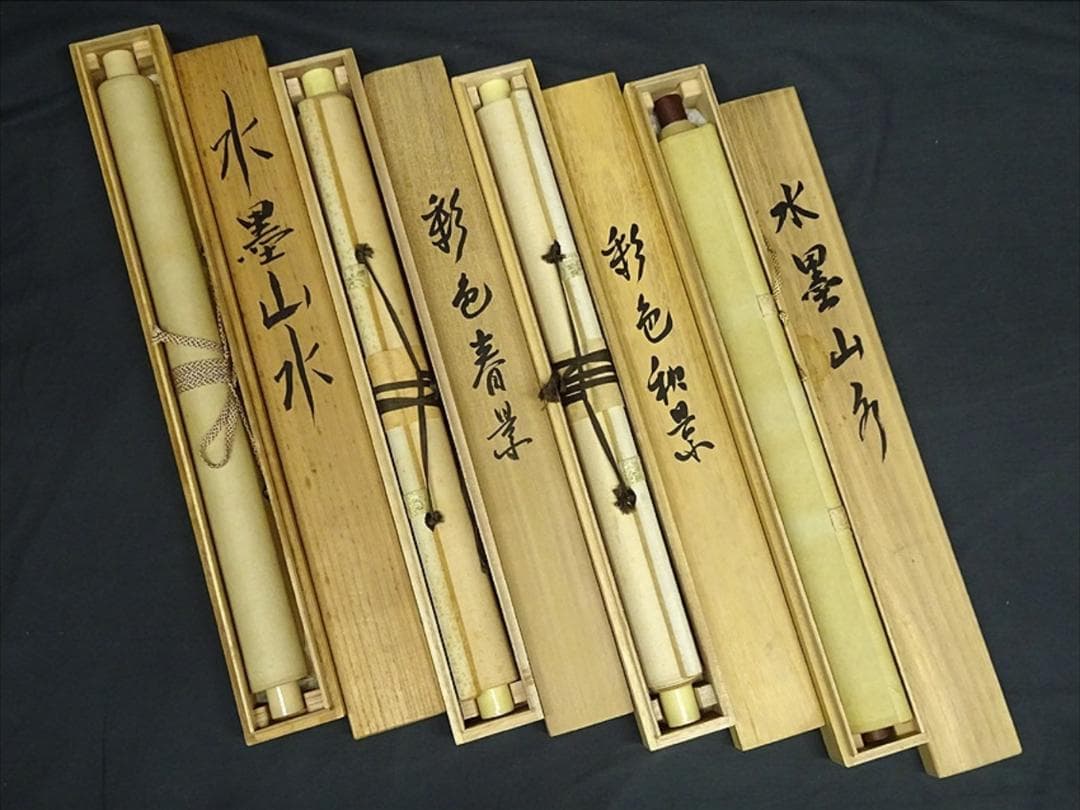 水墨山水
彩色春景
彩色秋景
水墨山水